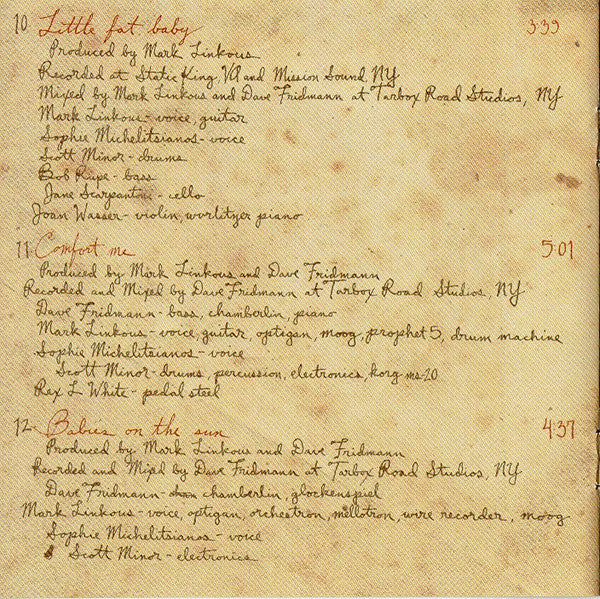 10 Little fat baby 3:39
Produced by Mark Linkous
Recorded at Static King, VA and Mission Sound, NY
Mixed by Mark Linkous and Dave Fridmann at Tarbox Road Studios, NY
Mark Linkous - voice, guitar
Sophie Michelitsianos - voice
Scott Minor - drums
Bob Rupe - bass
Jane Scarpantoni - cello
Joan Wasser - violin, wurlitzer piano
11 Comfort me 5:01
Produced by Mark Linkous and Dave Fridmann
Recorded and Mixed by Dave Fridmann at Tarbox Road Studios, NY
Dave Fridmann - bass, chamberlin, piano
Mark Linkous - voice, guitar, optigan, moog, prophet 5, drum machine
Sophie Michelitsianos - voice
Scott Minor - drums, percussion, electronics, korg ms-20
Rex L White - pedal steel
12 Babies on the sun 4:37
Produced by Mark Linkous and Dave Fridmann
Recorded and Mixed by Dave Fridmann at Tarbox Road Studios, NY
Dave Fridmann - chamberlin, glockenspiel
Mark Linkous - voice, optigan, orchestron, mellotron, wire recorder, moog
Sophie Michelitsianos - voice
Scott Minor - electronics